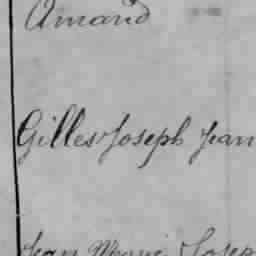 Amand
Gilles Joseph Jean
Jean Marie Josep